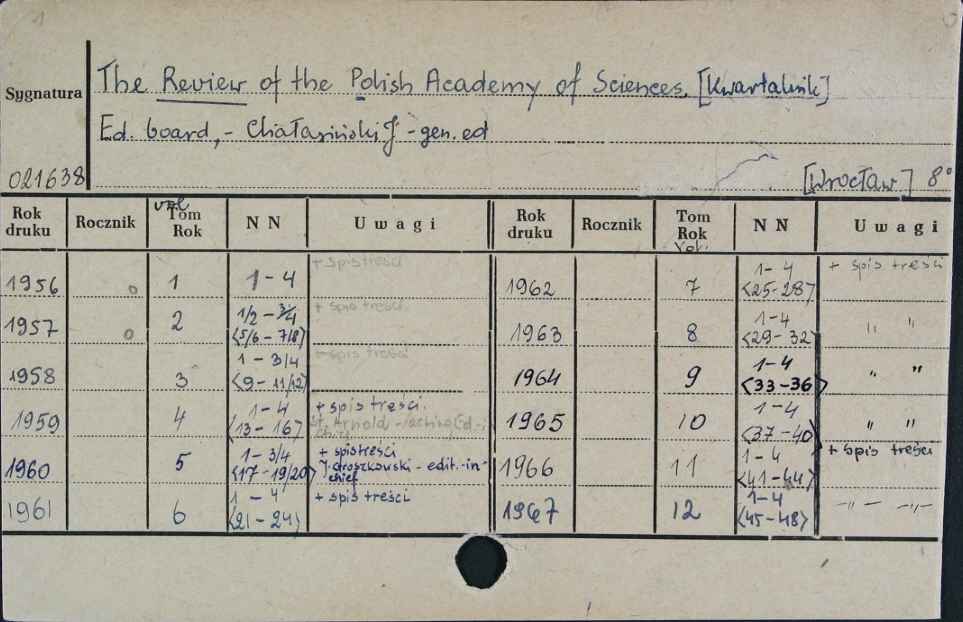 1
The Review of the Polish Academy of Sciences. [Kwartalnik]
Sygnatura
Ed. board, - Chałasiński J - gen. ed
021638 [Wrocław] 8°
Rok druku Rocznik vol. Tom Rok N N Uwagi Rok druku Rocznik Tom Rok Vol. N N Uwagi
1956 o 1 1-4 + spis treści 1962 7 1-4 <25-28> + spis treści
1957 o 2 1/2 - 3/4 <5/6 - 7/8> + spis treści 1963 8 1-4 <29-32> " "
1958 3 1 - 3/4 <9 - 11/12> + spis treści 1964 9 1-4 <33-36> " "
1959 4 1-4 <13-16> + spis treści. St. Arnold - acting Ed.-i chief 1965 10 1-4 <37-40> " "
1960 5 1-3/4 <17-19/20> + spis treści J. Groszkowski - edit.-in-chief 1966 11 1-4 <41-44> + spis treści
1961 6 1-4 <21-24> + spis treści 1967 12 1-4 <45-48> -"- -"-